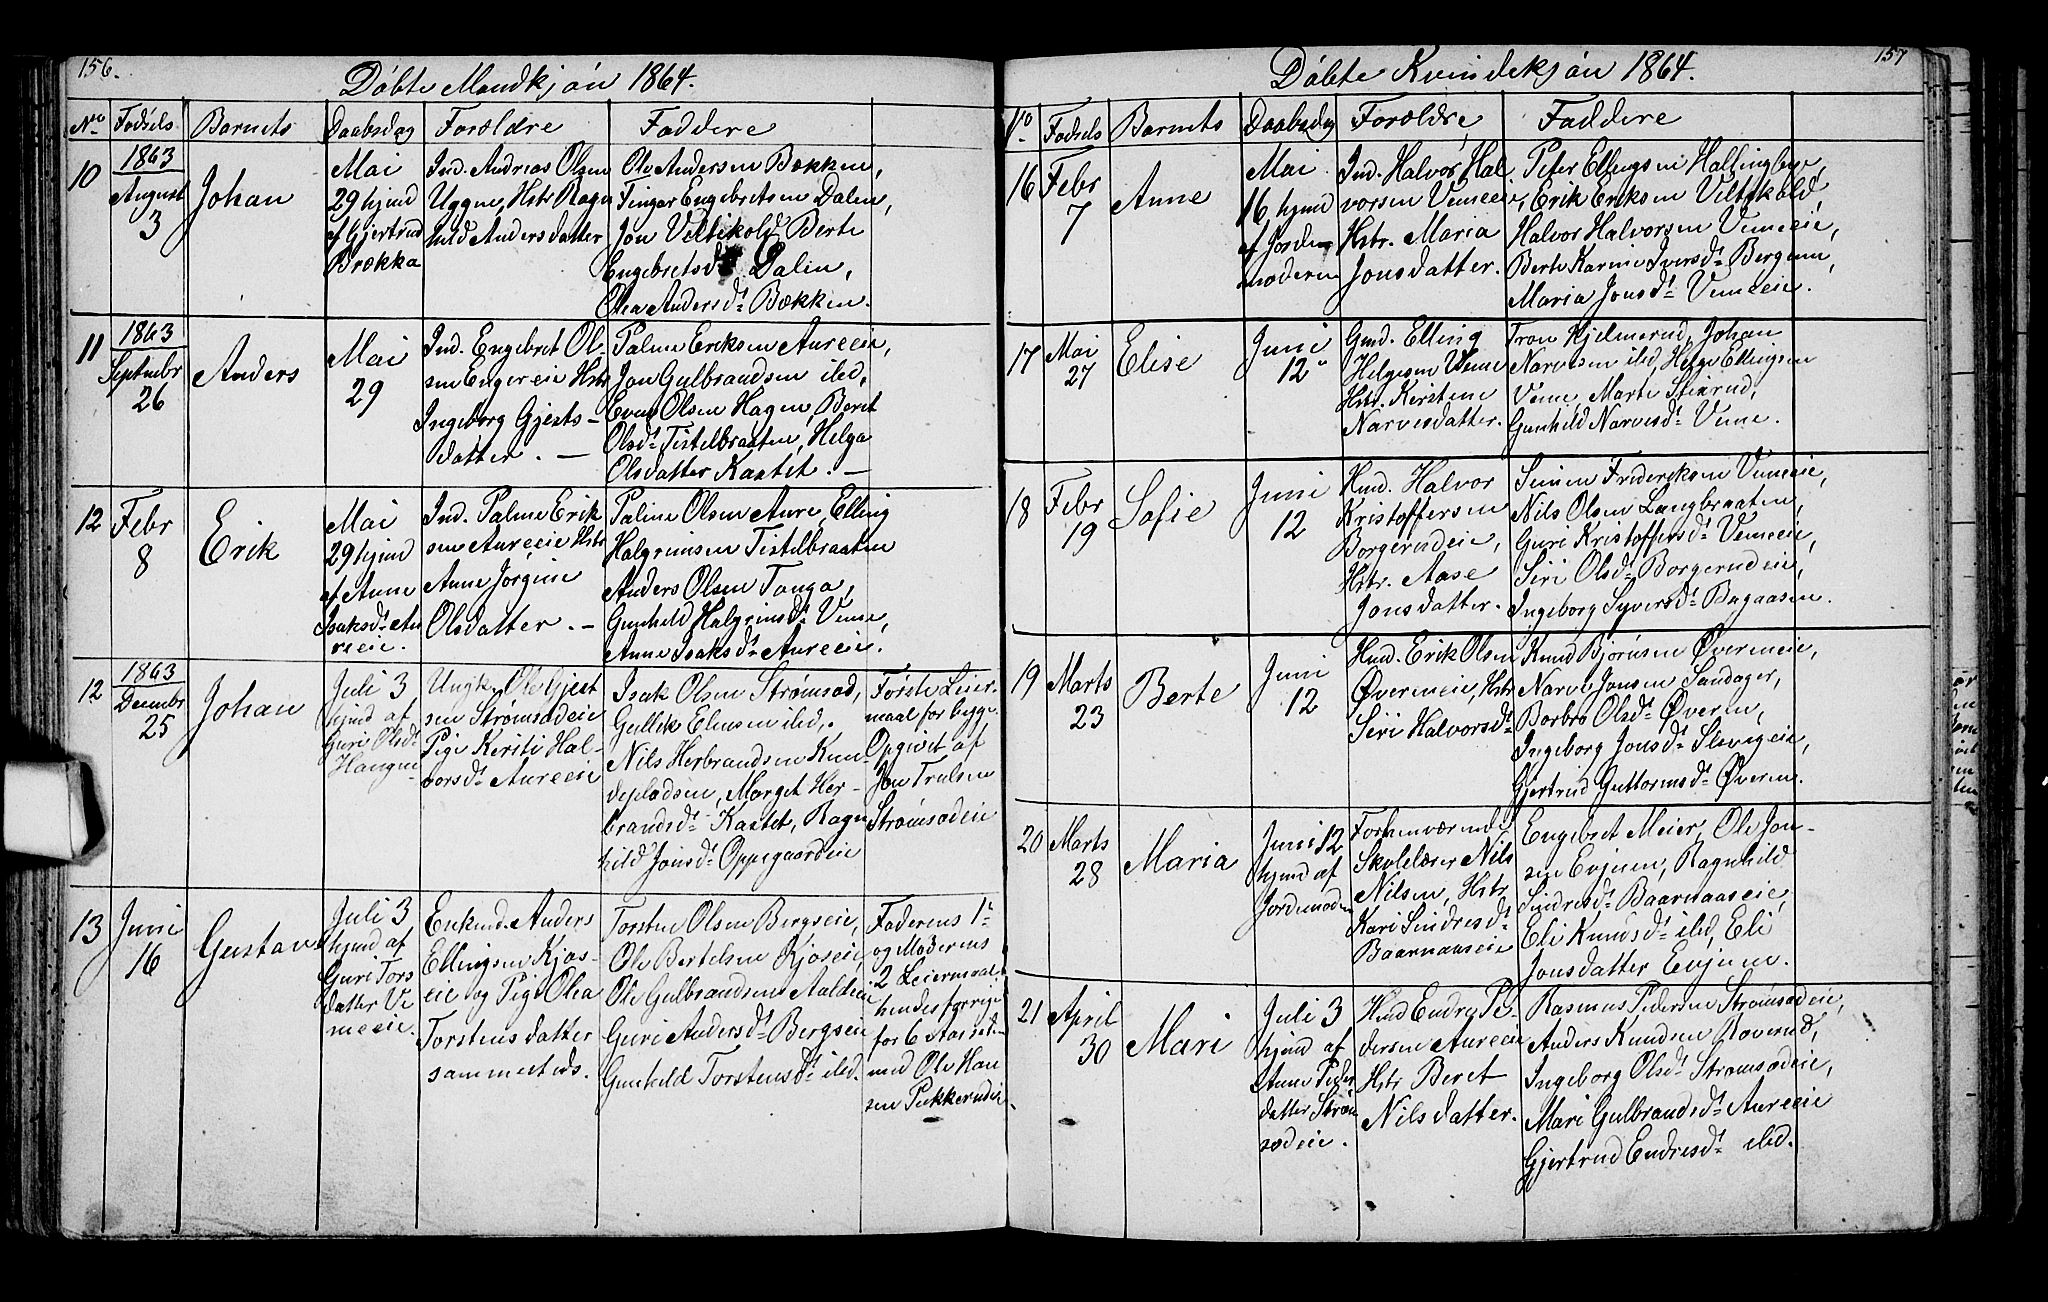 156.
Döbte Mandkjön 1864.
No Fødsels Barnets Daabsdag Forældre Faddere
10
1863
August
3
Johan
Mai
29 hjmd
af Gjertrud
Brækka
Ind. Andreas Olsen
Uggen, Hstr Ragn
hild Andersdatter
Ole Andersen Bækken,
Fingar Engebretsen Dalen,
Jon Veltikold, Berte
Engebretsdt. Dalen,
Olea Andersdt. Bækken.
11
1863
Septembr
26
Anders
Mai
29
Ind. Engebret Ol-
sen Engereie Hstr
Ingeborg Gjests-
datter. —
Palme Eriksen Aureeie,
Jon Gulbrandsen ibd,
Even Olsen Hagen, Beret
Olsdt. Tistelbraaten, Helga
Olsdatter Kastet. —
12
Febr
8
Erik
Mai
29 hjmd
af Anne
Isaksdt. Au
reeie.
Ind. Palme Erik
sen Aureeie Hstr
Anne Jørgine
Olsdatter. —
Palme Olsen Aure, Elling
Halgrimsen Tistelbraaten
Anders Olsen Tanga,
Gunhild Halgrimsdt. Veme,
Anne Isaksdt. Aureeie.
12
1863
Decembr
25
Johan
Juli 3
hjmd af
Guri Olsdt.
Haugen
Ungk. Ole Gjest
sen Strømsødeie
Pige Kersti Hal-
vorsdt. Aureeie
Isak Olsen Strømsød,
Gullik Elensen ibd,
Nils Herbrandsen Kun-
depladsen, Marget Her-
brandsdt. Kastet, Ragn
hild Jonsdt. Oppegaardeie
Første Leier-
maal for begge.
Opgivet af
Jon Trulsen
Strømsødeie
13
Juni
16
Gustav
Juli 3
hjmd af
Guri Tors
datter Ve
meeie.
Enkmd. Anders
Ellingsen Kjøs-
eie og Pige Olea
Torstensdatter
sammesteds.
Torsten Olsen Bergseie,
Ole Bertelsen Kjøseie,
Ole Gulbrandsen Aaldeie
Guri Andersdt. Bergseie
Gunhild Torstensdt. ibd.
Faderens 1te
og Moderens
2 Leiermaal
hendes forrige
for 6 Aar sid
med Ole Han
sen Pukkerudeie
157
Döbte Kvindekjön 1864.
No Fødsels Barnets Daabsdag Forældre, Faddere
16
Febr
7
Anne
Mai
16 hjmd
af Jorde
moderen
Ind. Halvor Hal
vorsen Vemeeie,
Hstr. Maria
Jonsdatter.
Peter Ellingsen Hallingbye,
Erik Eriksen Viltikold,
Halvor Halvorsen Vemeeie,
Berte Karine Iversdt. Bergenn,
Maria Jonsdt. Vemeeie.
17
Mai
27
Elise
Juni
12
Gmd. Elling
Helgesen Veme
Hstr. Kirstine
Narvesdatter.
Tron Hjelmerud, Johan
Narvesen ibd, Helge Ellingsen
Veme, Marte Stixrud,
Gunhild Narvesdt. Veme.
18
Febr
19
Sofie
Juni
12
Hmd. Halvor
Kristoffersen
Borgerudeie,
Hstr. Aase
Jonsdatter.
Simen Frideriksen Vemeeie,
Nils Olsen Langbraaten,
Guri Kristoffersdt. Vemeeie,
Siri Olsdt. Borgerudeie,
Ingeborg Syversdt. Bagaasen.
19
Marts
23
Berte
Juni
12
Hmd. Erik Olsen
Øvermeie, Hstr
Siri Halvorsdt.
Knud Bjørnsen Øvermeie,
Narve Jonsen Sandager,
Borbro Olsdt. Øveren,
Ingeborg Jonsdt. Slevigeie,
Gjertrud Guttormsdt. Øveren.
20
Marts
28
Maria
Juni 12
hjmd af
Jordemoder
Forhenværende
Skolelærer Nils
Nilsen, Hstr
Kari Sindresdt.
Baarnaaseie
Engebret Meier, Ole Jon-
sen Evjuen, Ragnhild
Sindresdt. Baarnaaseie,
Eli Knudsdt. ibd, Eli
Jonsdatter Evjuen.
21
April
30
Mari
Juli 3
hjmd af
Anne Peder
datter Strøm
sødeie.
Hmd Endre Pe-
dersen Aureeie
Hstr Beret
Nilsdatter.
Rasmus Pedersen Strømsødeie,
Anders Knudsen Hoverud,
Ingeborg Olsdt. Strømsødeie,
Mari Gulbrandsdt. Aureeie
Gjertrud Endresdt. ibd.